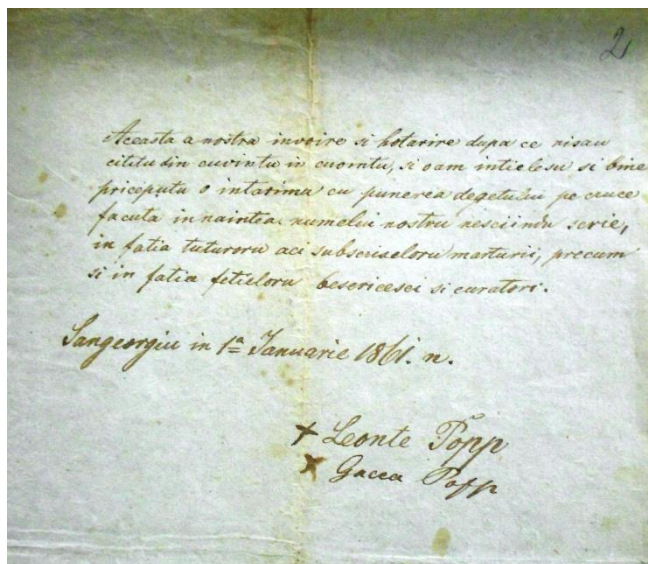 2
Aceasta a nostra invoire si hotarire dupa ce nisau
cititu din cuvintu in cuvintu, si oam intielesu si bine
priceputu o intarimu cu punerea degetului pe cruce
facuta in naintea numelui nostru nesciindu scrie,
in fatia tuturoru aci subscriseloru marturii, precum
si in fatia fetieloru besericesci si curatori.
Sangeorgiu in 1a Januarie 1861. n.
+ Leonte Popp
+ Gacea Popp